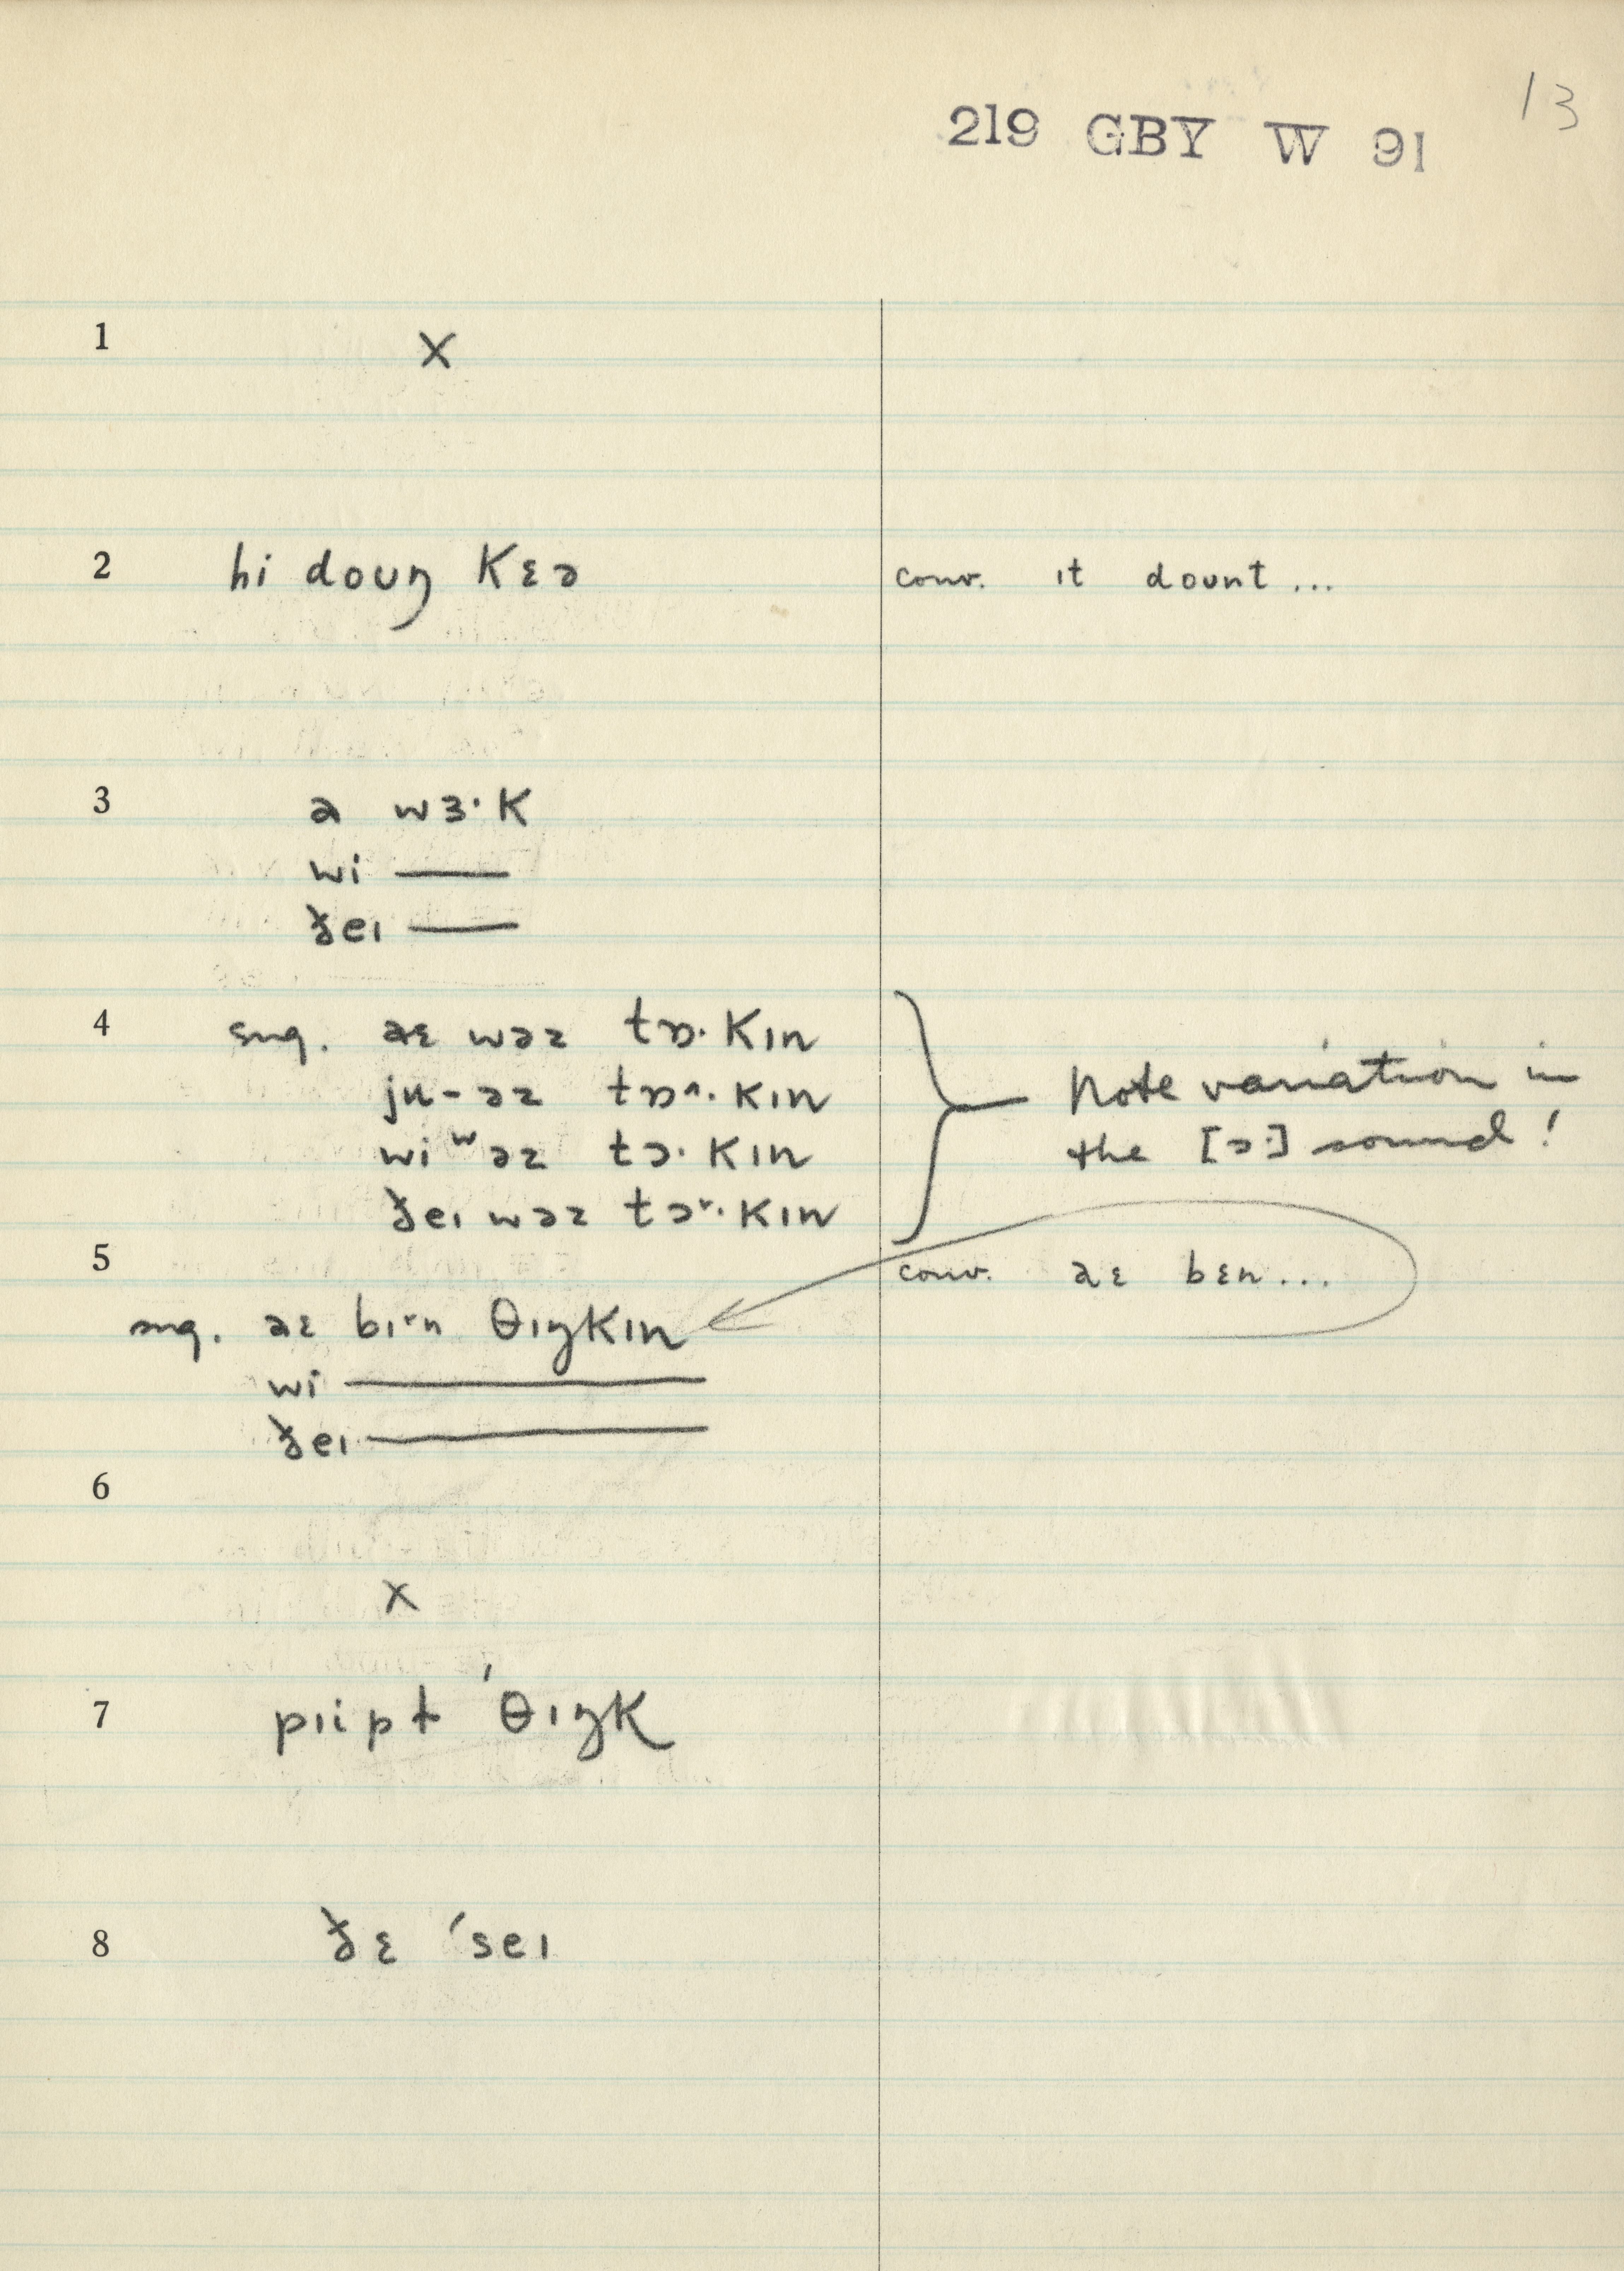 13
219 GBY W 91
1 x
2 hi doʊŋ kɛə conv. ɪt doʊnt...
3 a wɜ·k
wi ——
ðeɪ ——
4 sug. aɛ wəz tɒ·kɪn
ju-əz tɒ^·kɪn
wi ʷəz tɔ·kɪn
ðeɪ wəz tɔ˅·kɪn
Note variation in
the [ɔ·] sound!
5 conv. aɛ bɛn...
sug. aɛ bɪ˅n θɪŋkɪn
wi ——
ðeɪ ——
6 x
7 pɪipt ˈθɪŋk
8 ðɛ ˈseɪ